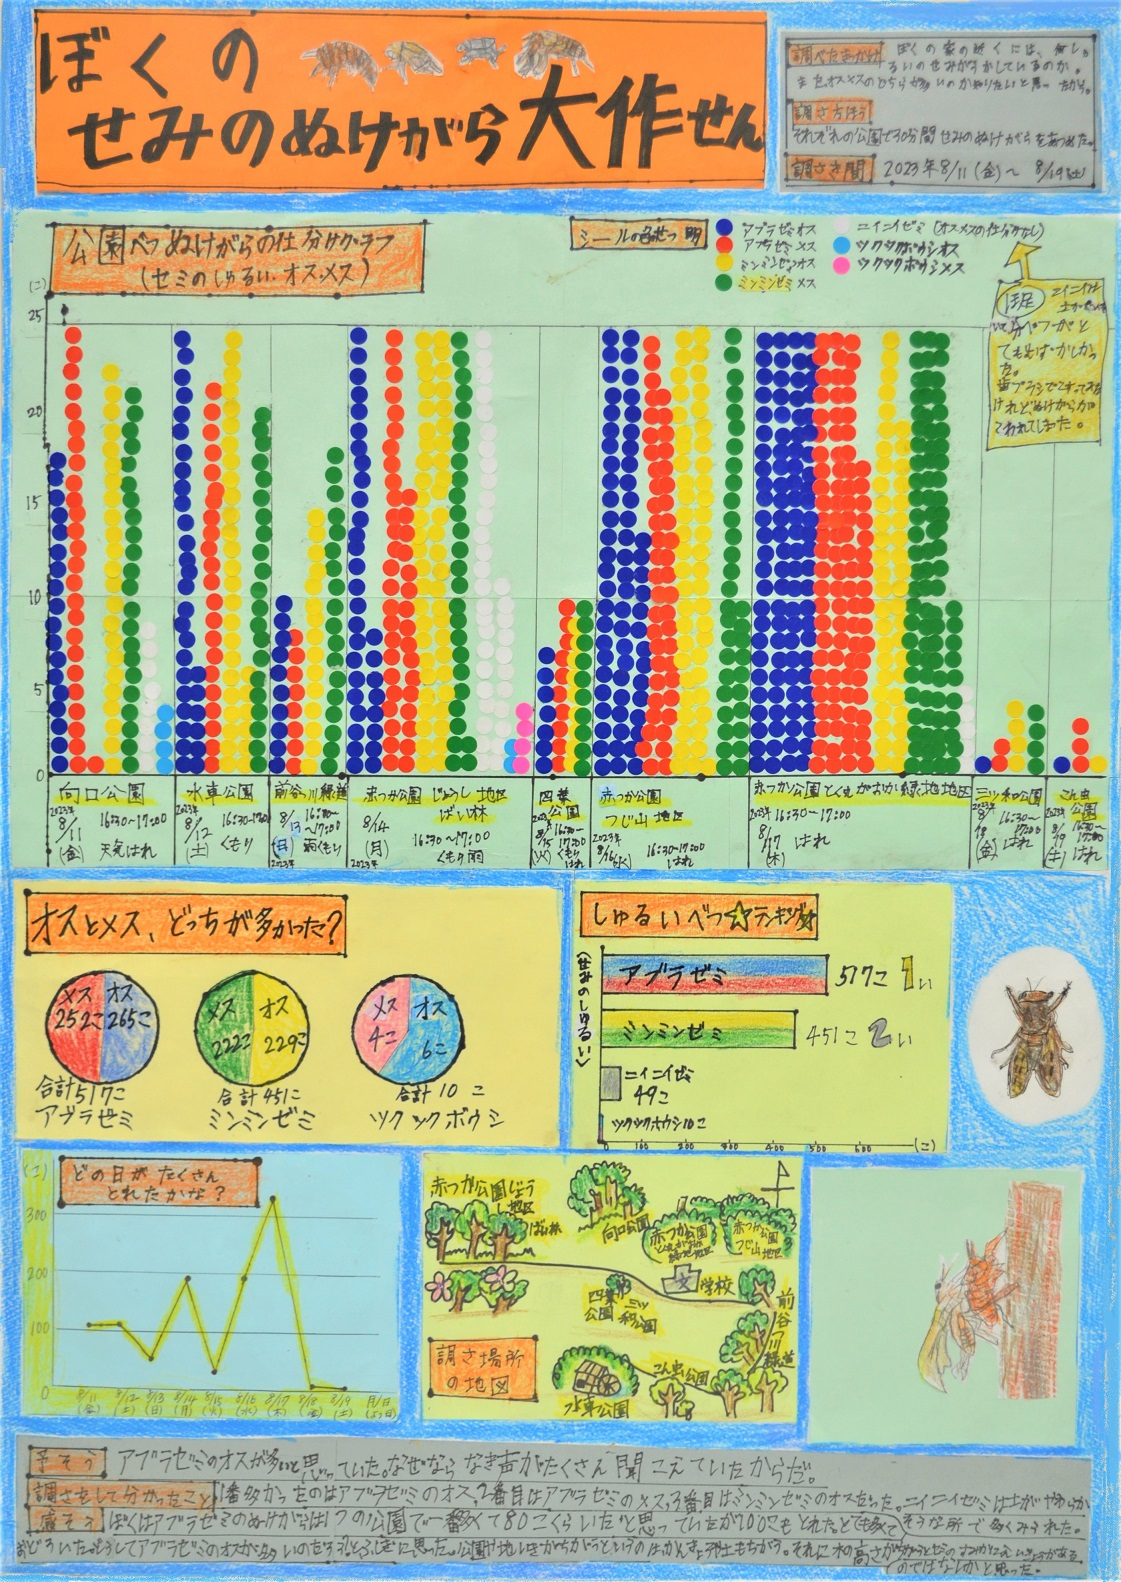 ぼくの
せみのぬけがら大作せん
調べたきっかけ ぼくの家の近くには、何しゅ
るいのせみが
またオスメスのどちらが多いのか知りたいと思ったから。
調さ方ほう
それぞれの公園で30分間せみのぬけがらをあつめた。
調さき間 2023年8/11(金)〜8/19(土)
公園べつぬけがらの仕分けグラフ
(セミのしゅるい・オスメス)
シールの色せつ明
アブラゼミオス
アブラゼミメス
ミンミンゼミオス
ミンミンゼミメス
ニイニイゼミ(オスメスの仕分けなし)
ツクツクボウシオス
ツクツクボウシメス
ほ足 ニイニイは
土がついて
いて分べつがと
てもむずかしかっ
た。
歯ブラシでこすってみた
けれどぬけがらが
こわれてしまった。
(こ)
25
20
15
10
5
0
向口公園
2023年 8/11 (金) 16:30〜17:00 天気はれ
水車公園
2023年 8/12 (土) 16:30〜17:00 くもり
前谷っ川緑道
8/13 16:30〜17:00
赤つか公園 じょうし地区
ばい林
8/14 (月) 16:30〜17:00 くもり雨
四葉公園
8/15 (火) 16:30〜17:00 くもり
赤つか公園
つじ山地区
2023年 8/16(水) 16:30〜17:00 はれ
赤つか公園とくまるがおか緑地地区
2023年 8/17 (木) 16:30〜17:00 はれ
三ツ和公園
2023年 8/18 (金) 16:30〜17:00 はれ
こん虫公園
2023年 8/19 (土) 16:30〜17:00 はれ
オスとメス、どっちが多かった?
メス 252こ オス 265こ
合計517こ
アブラゼミ
メス 222こ オス 229こ
合計451こ
ミンミンゼミ
メス 4こ オス 6こ
合計10こ
ツクツクボウシ
しゅるいべつ☆ランキング☆
(せみのしゅるい)
アブラゼミ 517こ 1い
ミンミンゼミ 451こ 2い
ニイニイゼミ
49こ
ツクツクホウシ10こ
0 100 200 300 400 500 600 (こ)
どの日がたくさん
とれたかな?
(こ)
300
200
100
0
8/11(金) 8/12(土) 8/13(日) 8/14(月) 8/15(火) 8/16(水) 8/17(木) 8/18(金) 8/19(土) 月/日(よう日)
赤つか公園じょうし地区
ばい林
向口公園
赤つか公園
赤つか公園
つじ山地区
文 学校
四葉公園
三ツ和公園
前谷っ川緑道
こん虫公園
水車公園
調さ場所
の地図
予そう アブラゼミのオスが多いと思っていた。なぜならなき声がたくさん聞こえていたからだ。
調さをして分かったこと 1番多かったのはアブラゼミのオス、2番目はアブラゼミのメス、3番目はミンミンゼミのオスだった。ニイニイゼミは土がやわらか
そうな所で多くみられた。
感そう ぼくはアブラゼミのぬけがらは1つの公園で一番多くて80こくらいだと思っていたが100こもとれたとても多くて
おどろいた。どうしてアブラゼミのオスが多いのだろうとふしぎに思った。
のではないかと思った。